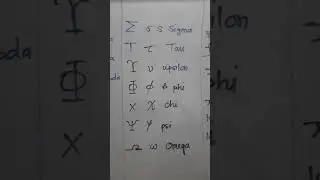 Σ σ s Sigma
T τ Tau
ϒ υ upsilon
Φ ϕ phi
X χ chi
Ψ ψ psi
Ω ω Omega